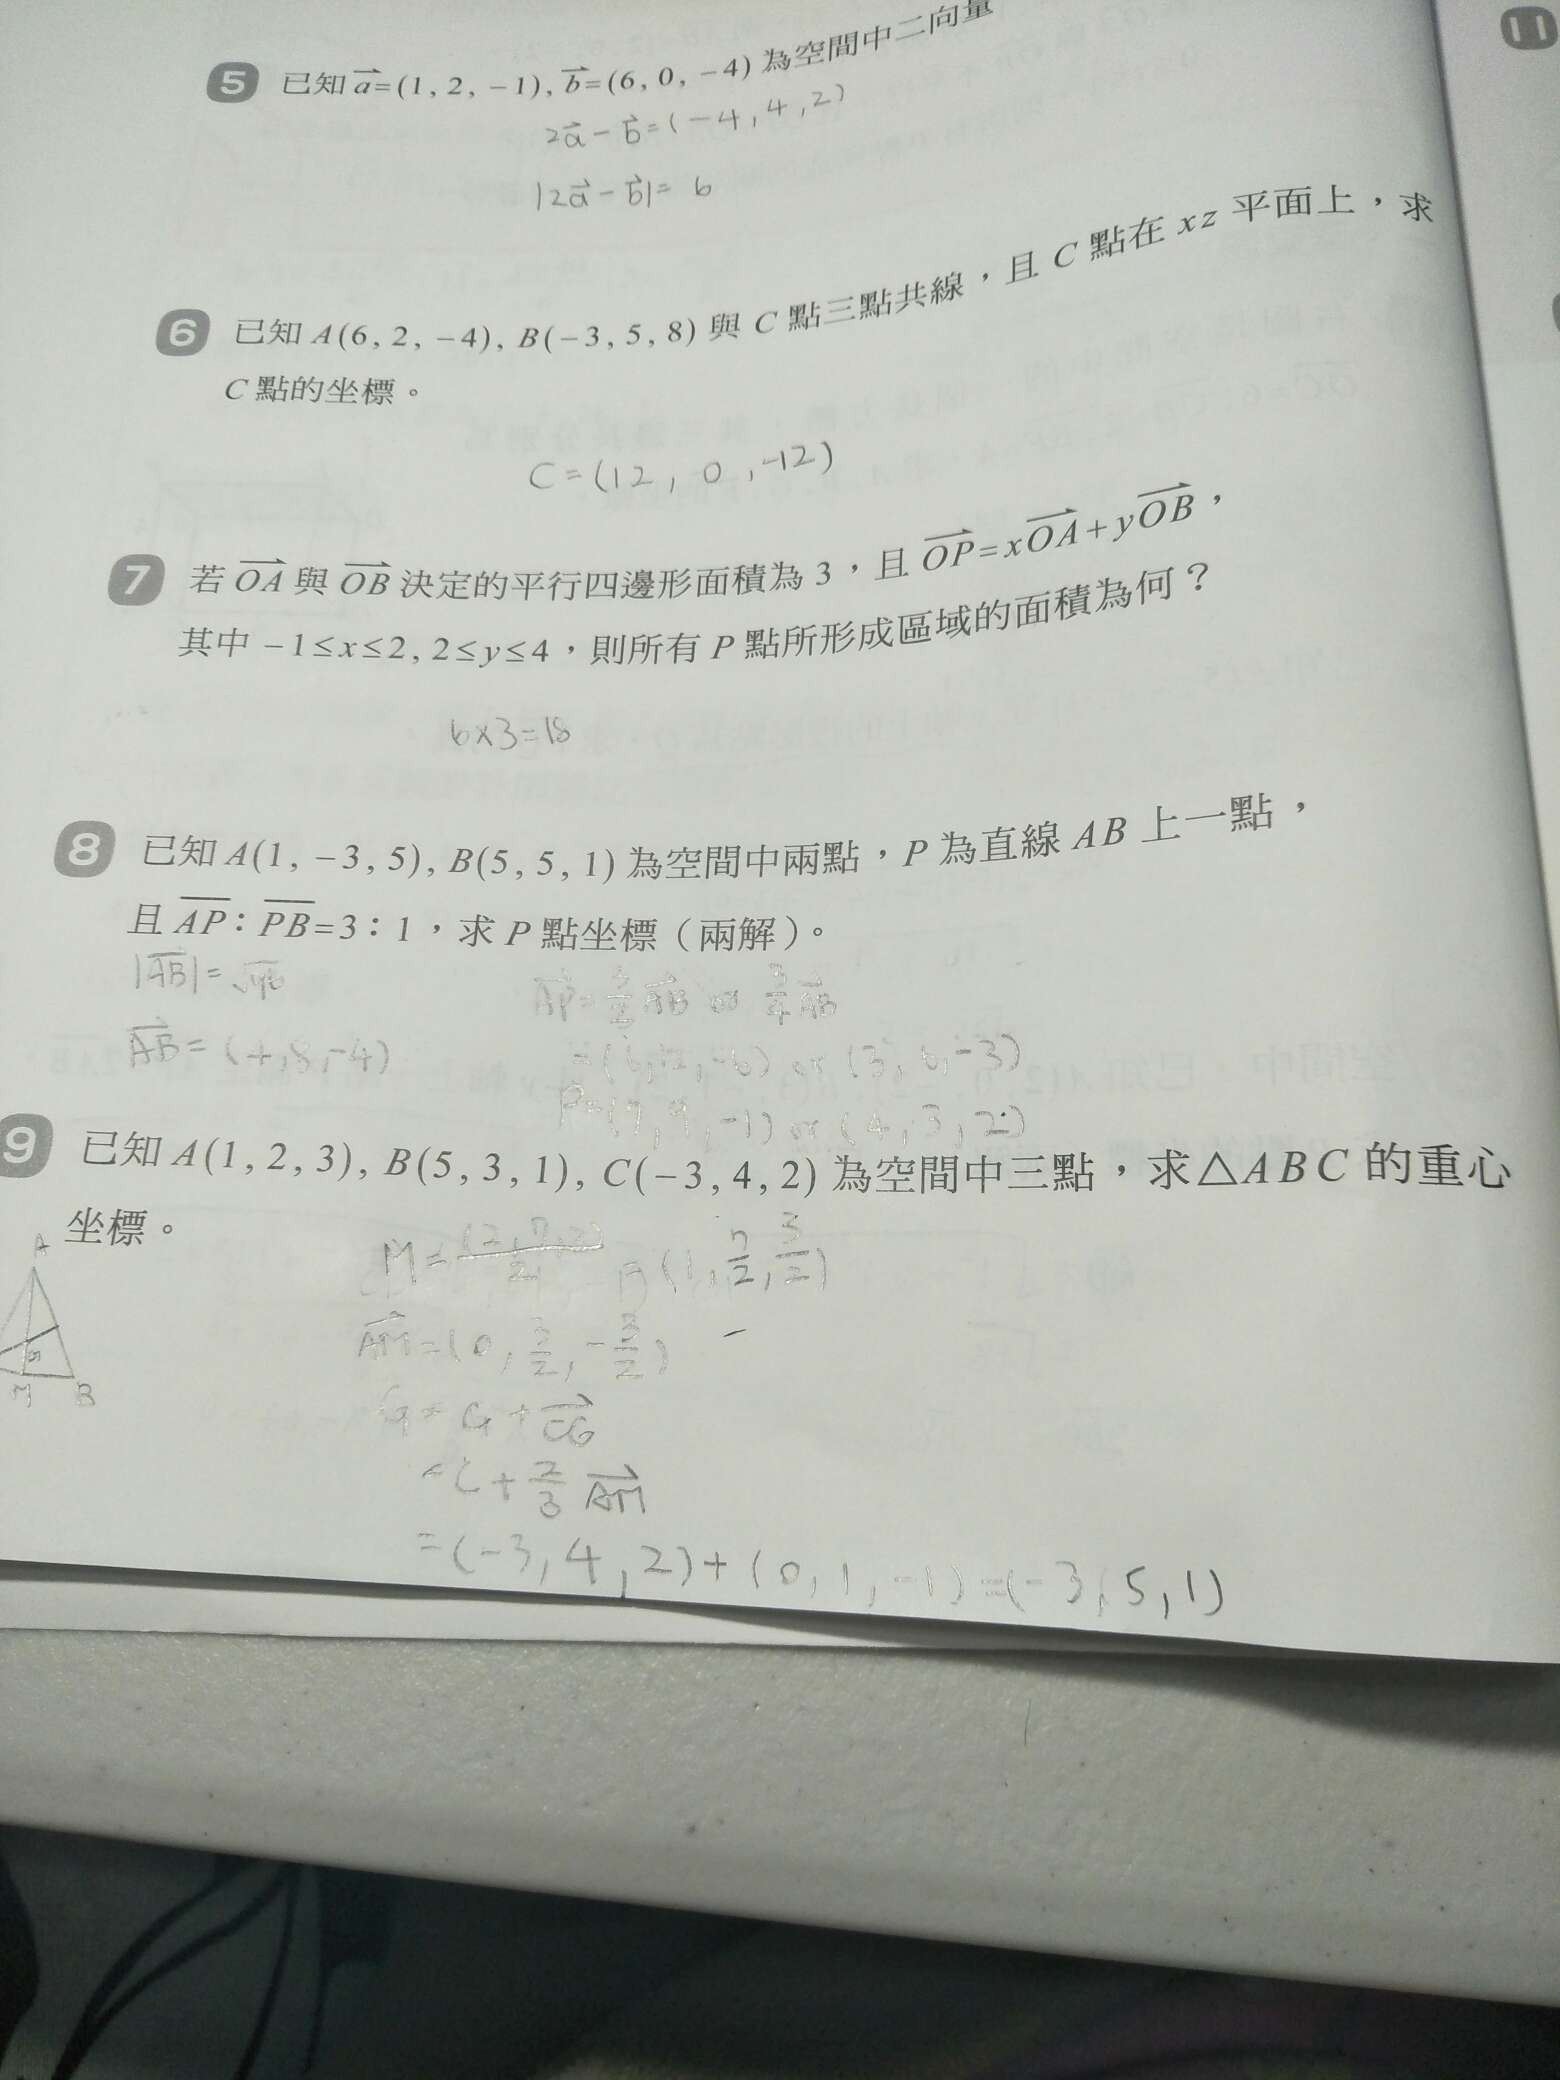 11
5 已知 a=(1, 2, -1), b=(6, 0, -4) 為空間中二向量
2a - b = (-4, 4, 2)
|2a - b| = 6
6 已知 A(6, 2, -4), B(-3, 5, 8) 與 C 點三點共線，且 C 點在 xz 平面上，求
C 點的坐標。
C = (12, 0, -12)
7 若 OA 與 OB 決定的平行四邊形面積為 3，且 OP=xOA+yOB，
其中 -1≤x≤2, 2≤y≤4，則所有 P 點所形成區域的面積為何？
6×3=18
8 已知 A(1, -3, 5), B(5, 5, 1) 為空間中兩點，P 為直線 AB 上一點，
且 AP：PB=3：1，求 P 點坐標（兩解）。
|AB| = √96
AP = 3/2 AB or 3/4 AB
AB = (4, 8, -4)
= (6, 12, -6) or (3, 6, -3)
P = (7, 9, -1) or (4, 3, 2)
9 已知 A(1, 2, 3), B(5, 3, 1), C(-3, 4, 2) 為空間中三點，求△ABC 的重心
坐標。
A
M = (2, 7, 3)/2 = (1, 7/2, 3/2)
AM = (0, 3/2, -3/2)
G
M B
G = C + CG
= C + 2/3 AM
= (-3, 4, 2) + (0, 1, -1) = (-3, 5, 1)